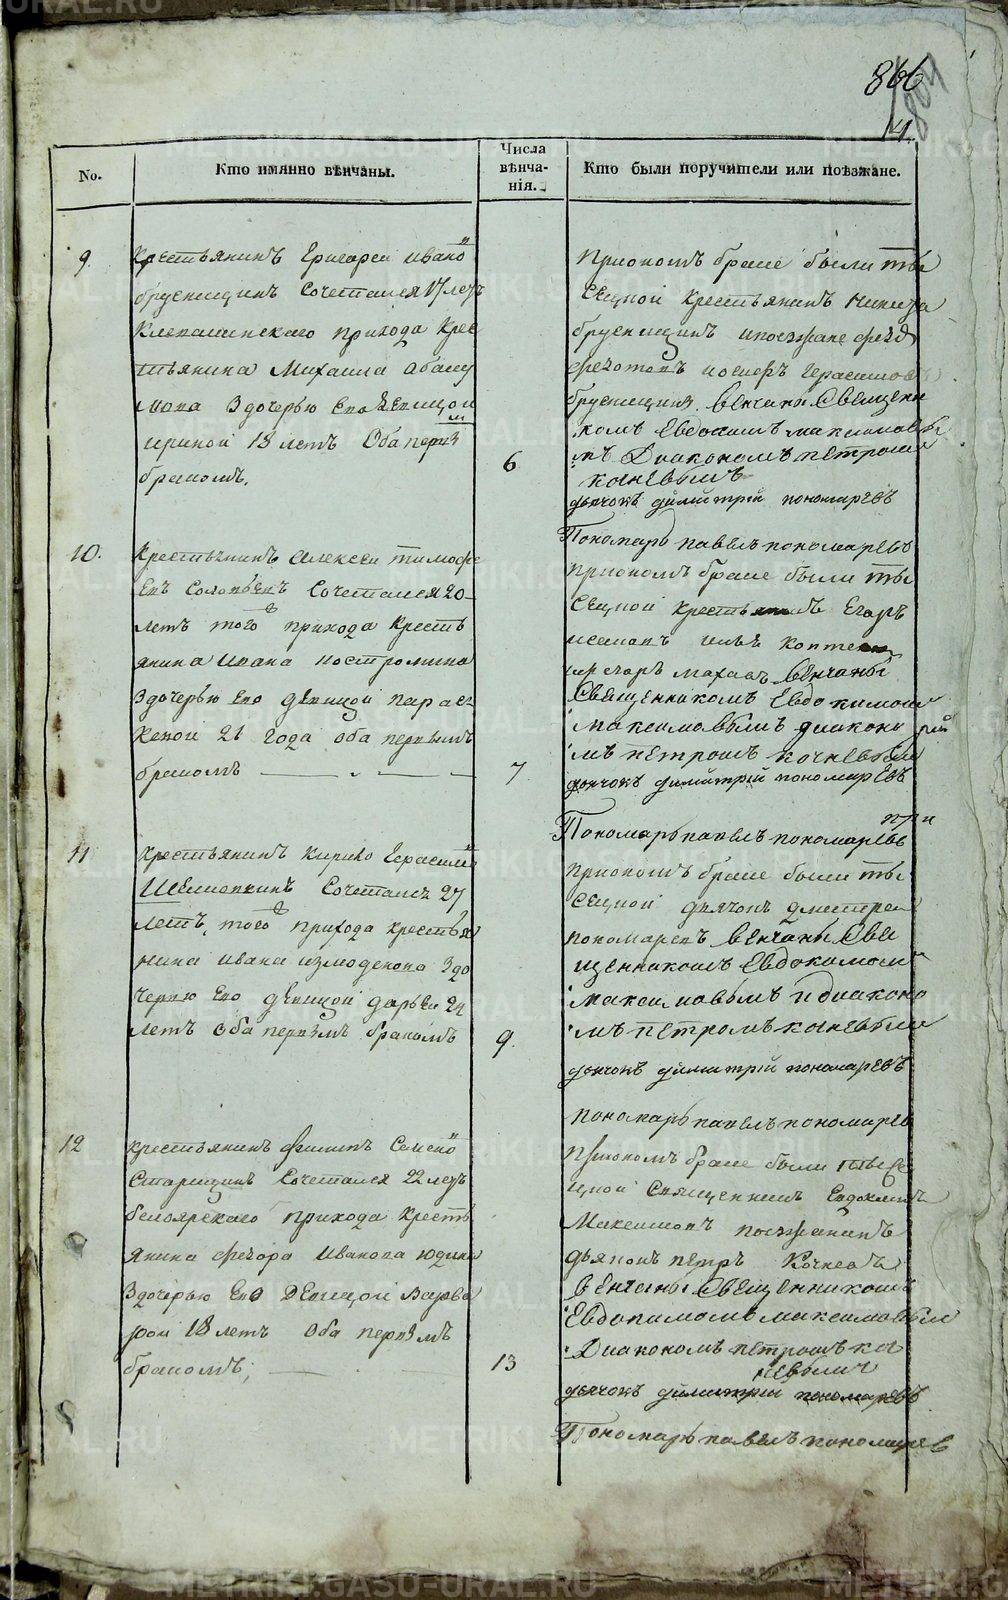 866
4
No.
Кто имянно вѣнчаны.
Числа
вѣнча-
нія.
Кто были поручители или поѣзжане.
9.
Крестьянинъ Григореи ивано
брусницинъ Сочетался 17 летъ
прихода крес
тьянина Михаила
Здочерью его девицои
ириной 18 летъ Оба первы
бракомъ.
6
Приономъ браке были ты
Сецкой крестьянинъ никита
брусницинъ ипоезжане
иосифъ Герасимовъ
брусницинъ венчаны Священи
комъ Евдокимъ максимовы
мъ Диакономъ петромъ
каневымъ
дьячокъ димитрій пономаревъ
Пономарь павелъ пономаревъ
10.
крестьянинъ Алексеи тимофе
евъ Соловьевъ Сочетался 20
летъ того прихода кресть
янина ивана
Здочерью его девицой парас
кевой 21 года оба первымъ
бракомъ
7
приономъ браке были ты
Сецкой крестьянинъ Егоръ
венчаны
Священникомъ Евдокимом
максимовымъ диаконо
мъ петромъ
дьячокъ димитрій пономаревъ
Пономарь павелъ пономаревъ
при
11
крестьянинъ Кирило Герасим
Сочетался 27
летъ, того прихода кресть
янина ивана Здо
черью его девицой дарьеи 24
летъ оба первымъ бракомъ
9.
приономъ браке были ты
Сецкой дьячокъ дмитреи
пономаревъ венчаны Свя
щенникомъ Евдокимом
максимовымъ и диаконо
мъ петромъ каневымъ
дьячокъ димитрій пономаревъ
пономарь павелъ пономарев
12
крестьянинъ Семено
Старицинъ Сочетался 22 летъ
белоярскаго прихода кресть
янина Федора Иванова юдина
Здочерью его Девицой Варва
рои 18 летъ Оба первымъ
бракомъ;
13
приономъ браке были тысе
цкой Священникъ Евдокимъ
Максимовъ поезжанинъ
дьяконъ петръ Кочневъ
венчаны Священникомъ
Евдокимомъ максимовым
Диакономъ петромъ ка
невымъ
дьячокъ димитрій пономаревъ
Пономарь павелъ пономарев
METRIKI.GASU-URAL.RU